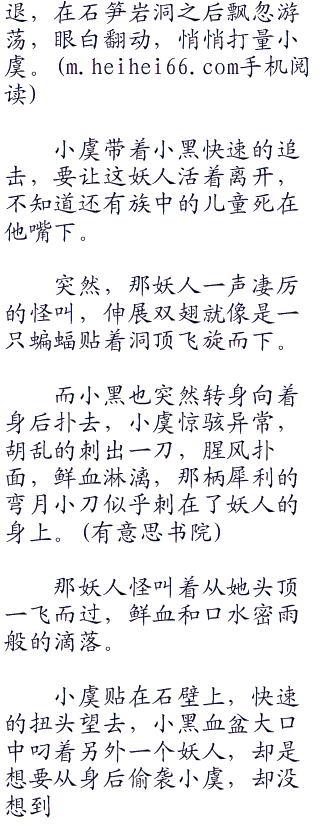 退，在石笋岩洞之后飘忽游
荡，眼白翻动，悄悄打量小
虞。(m.heihei66.com手机阅
读)
小虞带着小黑快速的追
击，要让这妖人活着离开，
不知道还有族中的儿童死在
他嘴下。
突然，那妖人一声凄厉
的怪叫，伸展双翅就像是一
只蝙蝠贴着洞顶飞旋而下。
而小黑也突然转身向着
身后扑去，小虞惊骇异常，
胡乱的刺出一刀，腥风扑
面，鲜血淋漓，那柄犀利的
弯月小刀似乎刺在了妖人的
身上。(有意思书院)
那妖人怪叫着从她头顶
一飞而过，鲜血和口水密雨
般的滴落。
小虞贴在石壁上，快速
的扭头望去，小黑血盆大口
中叼着另外一个妖人，却是
想要从身后偷袭小虞，却没
想到